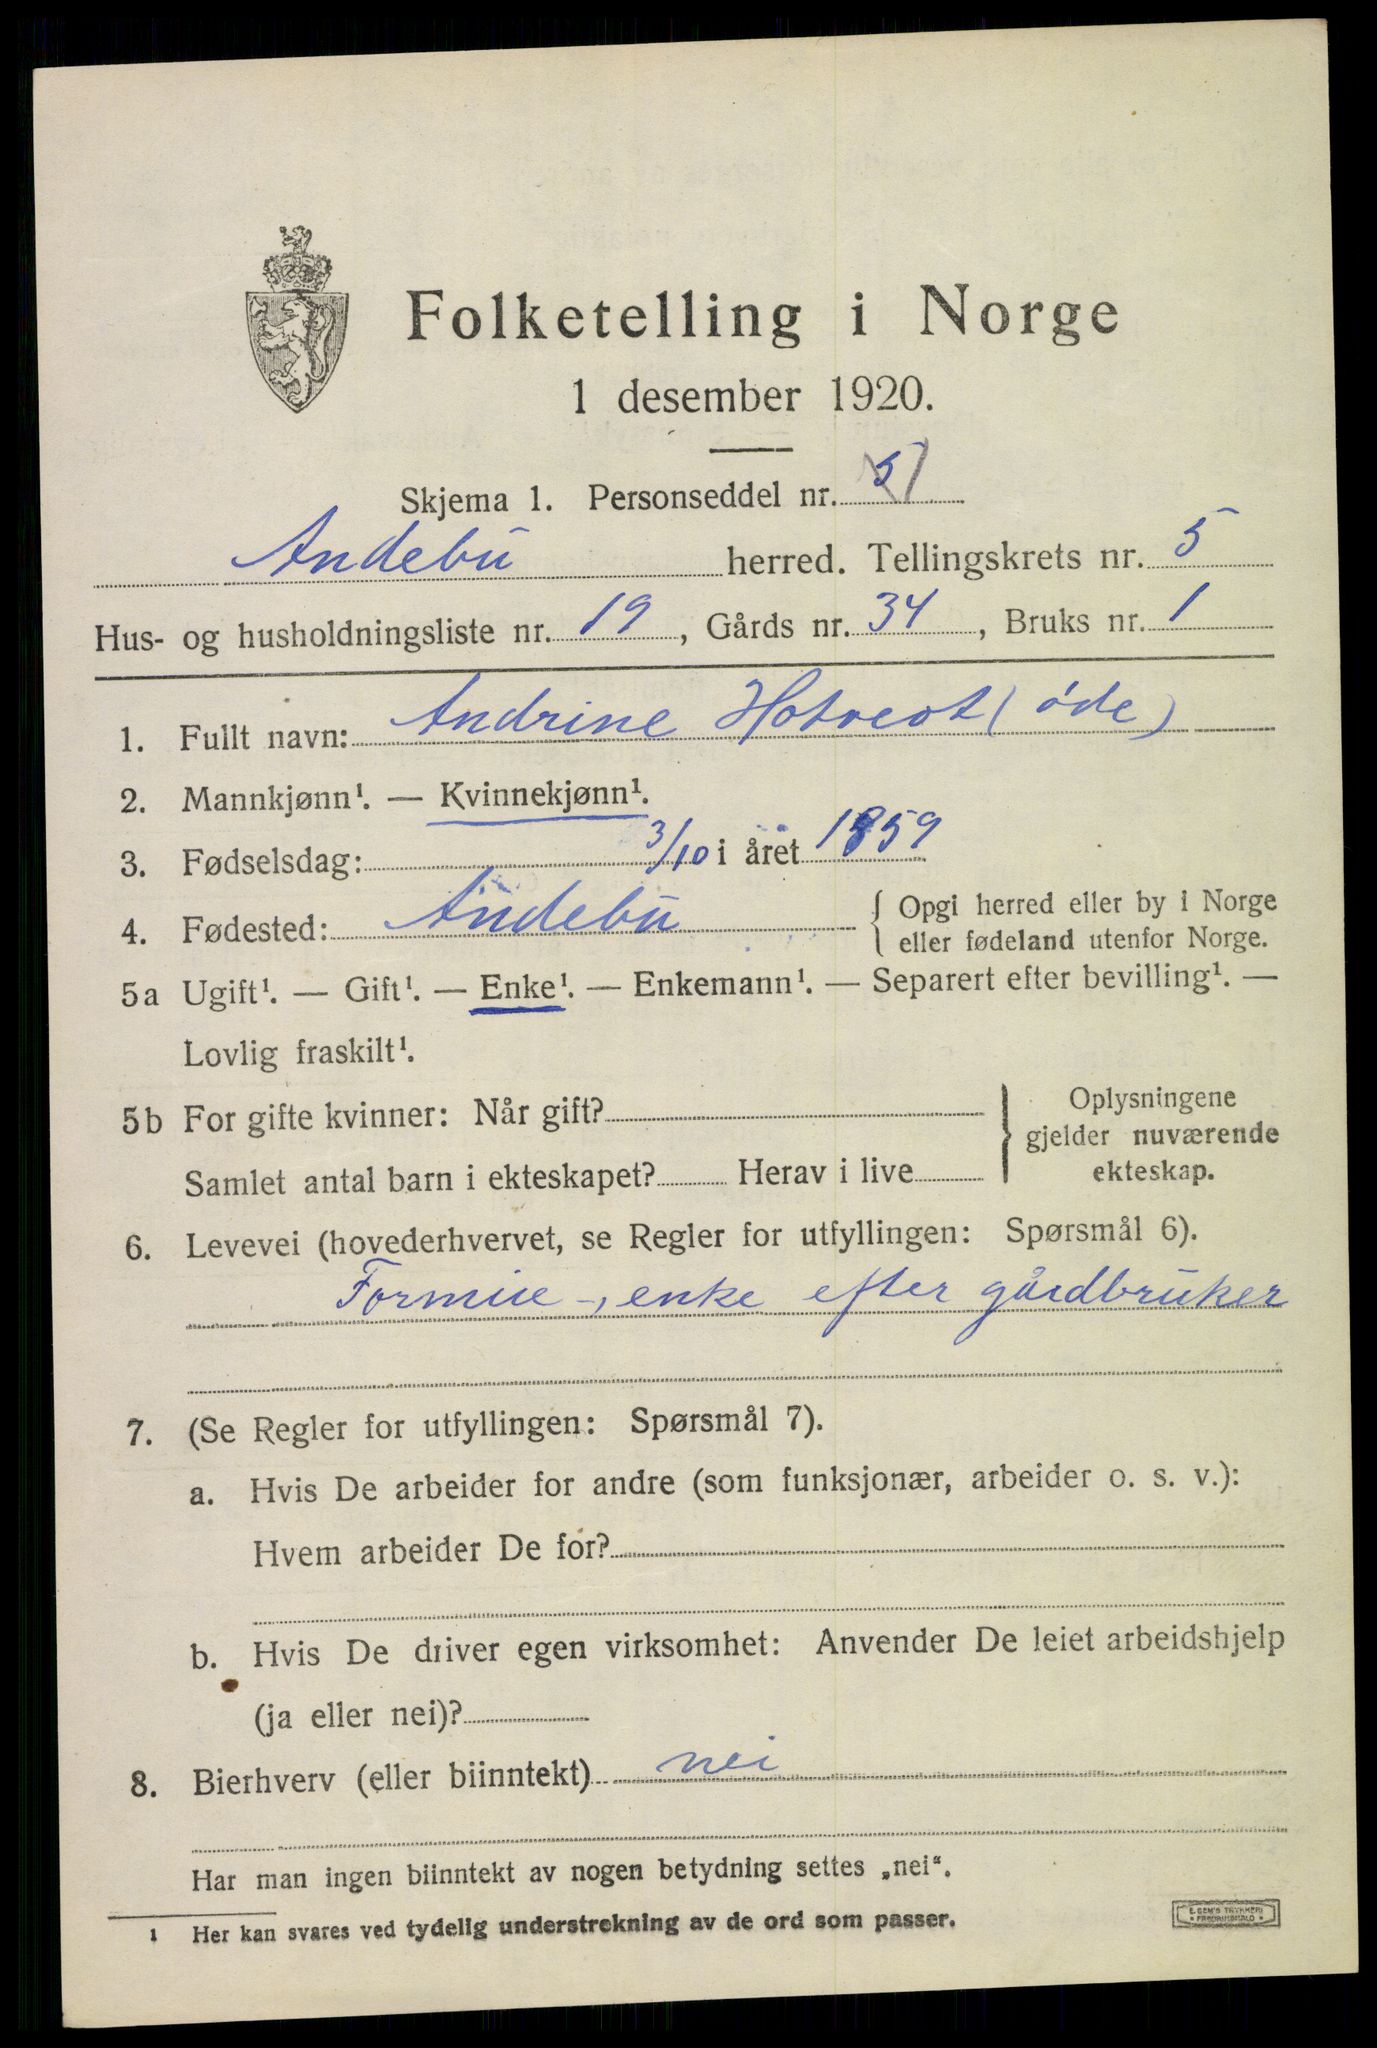 Folketelling i Norge
1 desember 1920.
Skjema 1. Personseddel nr. 5
Andebu herred. Tellingskrets nr. 5
Hus- og husholdningsliste nr. 19, Gårds nr. 34, Bruks nr. 1
1. Fullt navn: Andrine Hotvedt (øde)
2. Mannkjønn¹. — Kvinnekjønn¹.
3. Fødselsdag: 3/10 i året 1859
4. Fødested: Andebu { Opgi herred eller by i Norge
eller fødeland utenfor Norge.
5a Ugift¹. — Gift¹. — Enke¹. — Enkemann¹. — Separert efter bevilling¹. —
Lovlig fraskilt¹.
5b For gifte kvinner: Når gift? } Oplysningene
gjelder nuværende
Samlet antal barn i ekteskapet? Herav i live ekteskap.
6. Levevei (hovederhvervet, se Regler for utfyllingen: Spørsmål 6).
Formue -, enke efter gårdbruker
7. (Se Regler for utfyllingen: Spørsmål 7).
a. Hvis De arbeider for andre (som funksjonær, arbeider o. s. v.):
Hvem arbeider De for?
b. Hvis De driver egen virksomhet: Anvender De leiet arbeidshjelp
(ja eller nei)?
8. Bierhverv (eller biinntekt) nei
Har man ingen biinntekt av nogen betydning settes „nei“.
1 Her kan svares ved tydelig understrekning av de ord som passer.
E. SEM'S TRYKKERI
* FREDRIKSHALD *